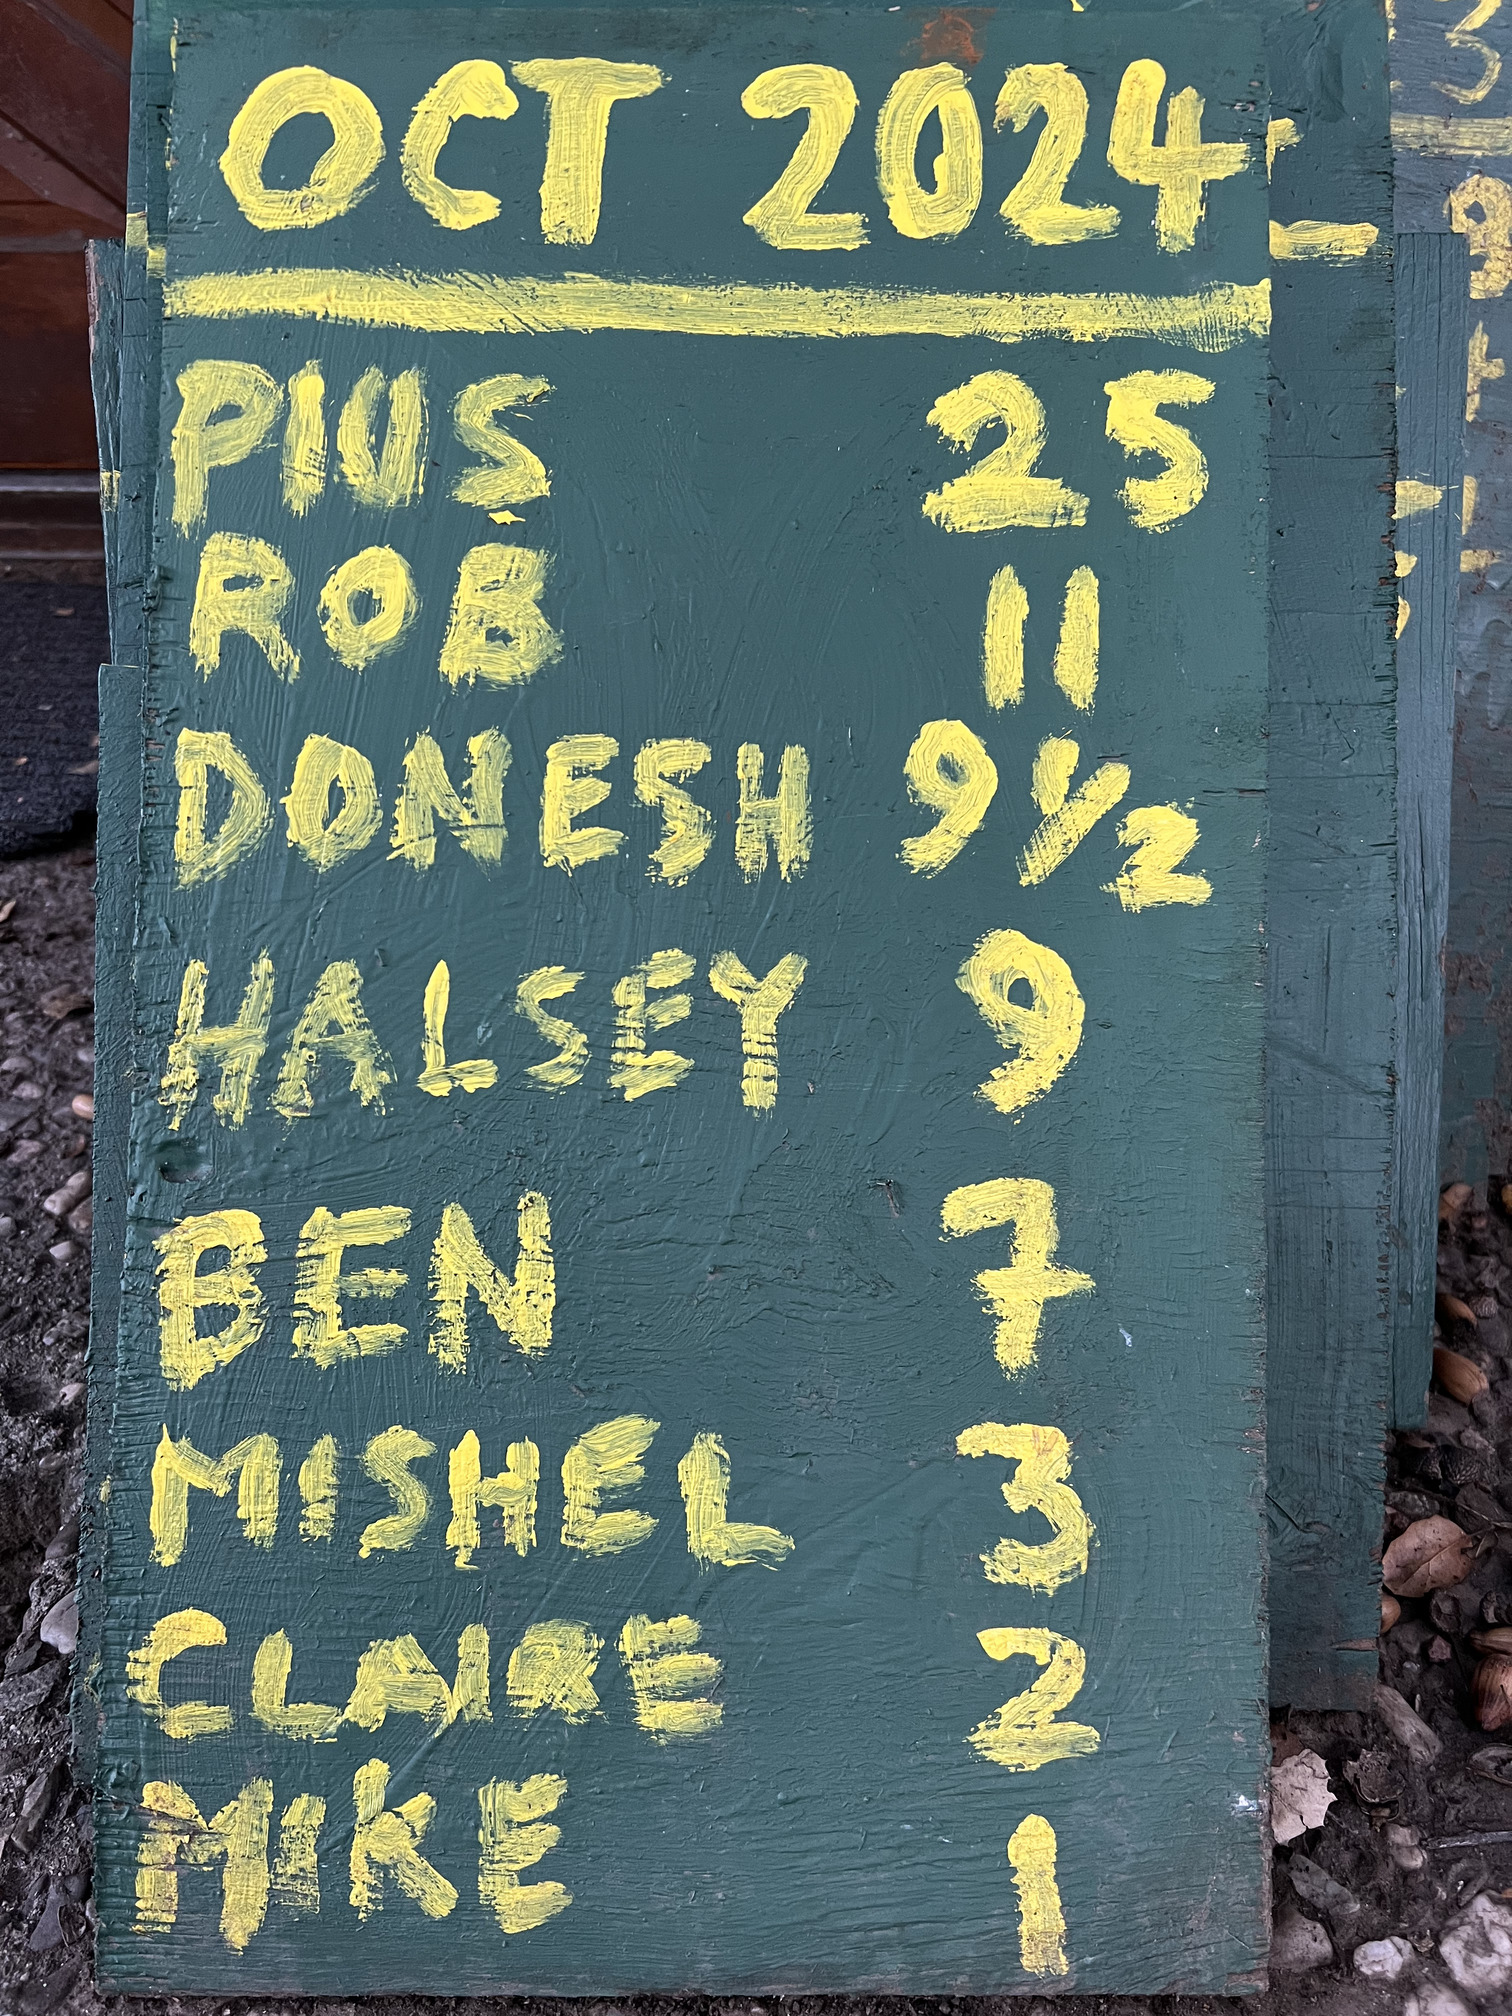 OCT 2024
PIUS 25
ROB 11
DONESH 9 1/2
HALSEY 9
BEN 7
MISHEL 3
CLAIRE 2
MIKE 1